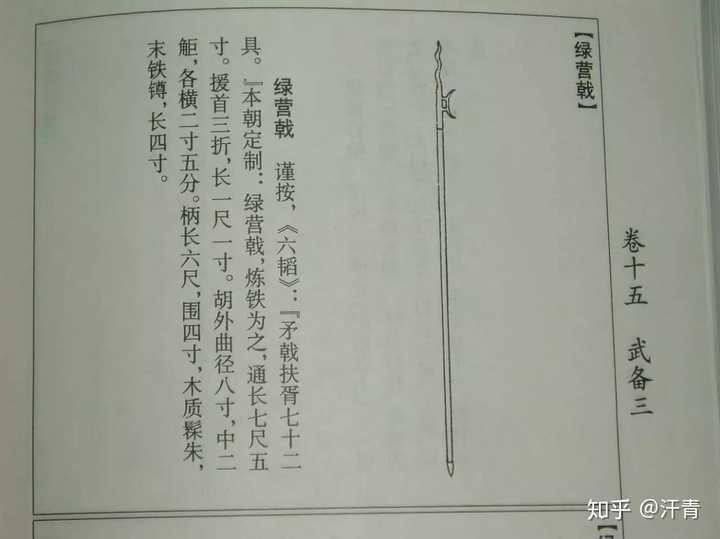 卷十五 武备三
【绿营戟】
绿营戟 谨按，《六韬》：『矛戟扶胥七十二
具。』本朝定制：绿营戟，炼铁为之，通长七尺五
寸。援首三折，长一尺一寸。胡外曲径八寸，中二
觝，各横二寸五分。柄长六尺，围四寸，木质髹朱，
末铁镈，长四寸。
知乎 @汗青